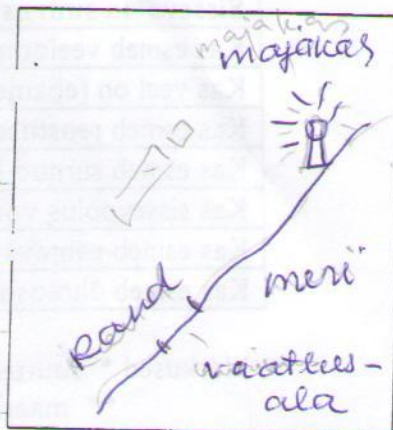 majakas
majakas
Rand
meri
vaatlus-
ala